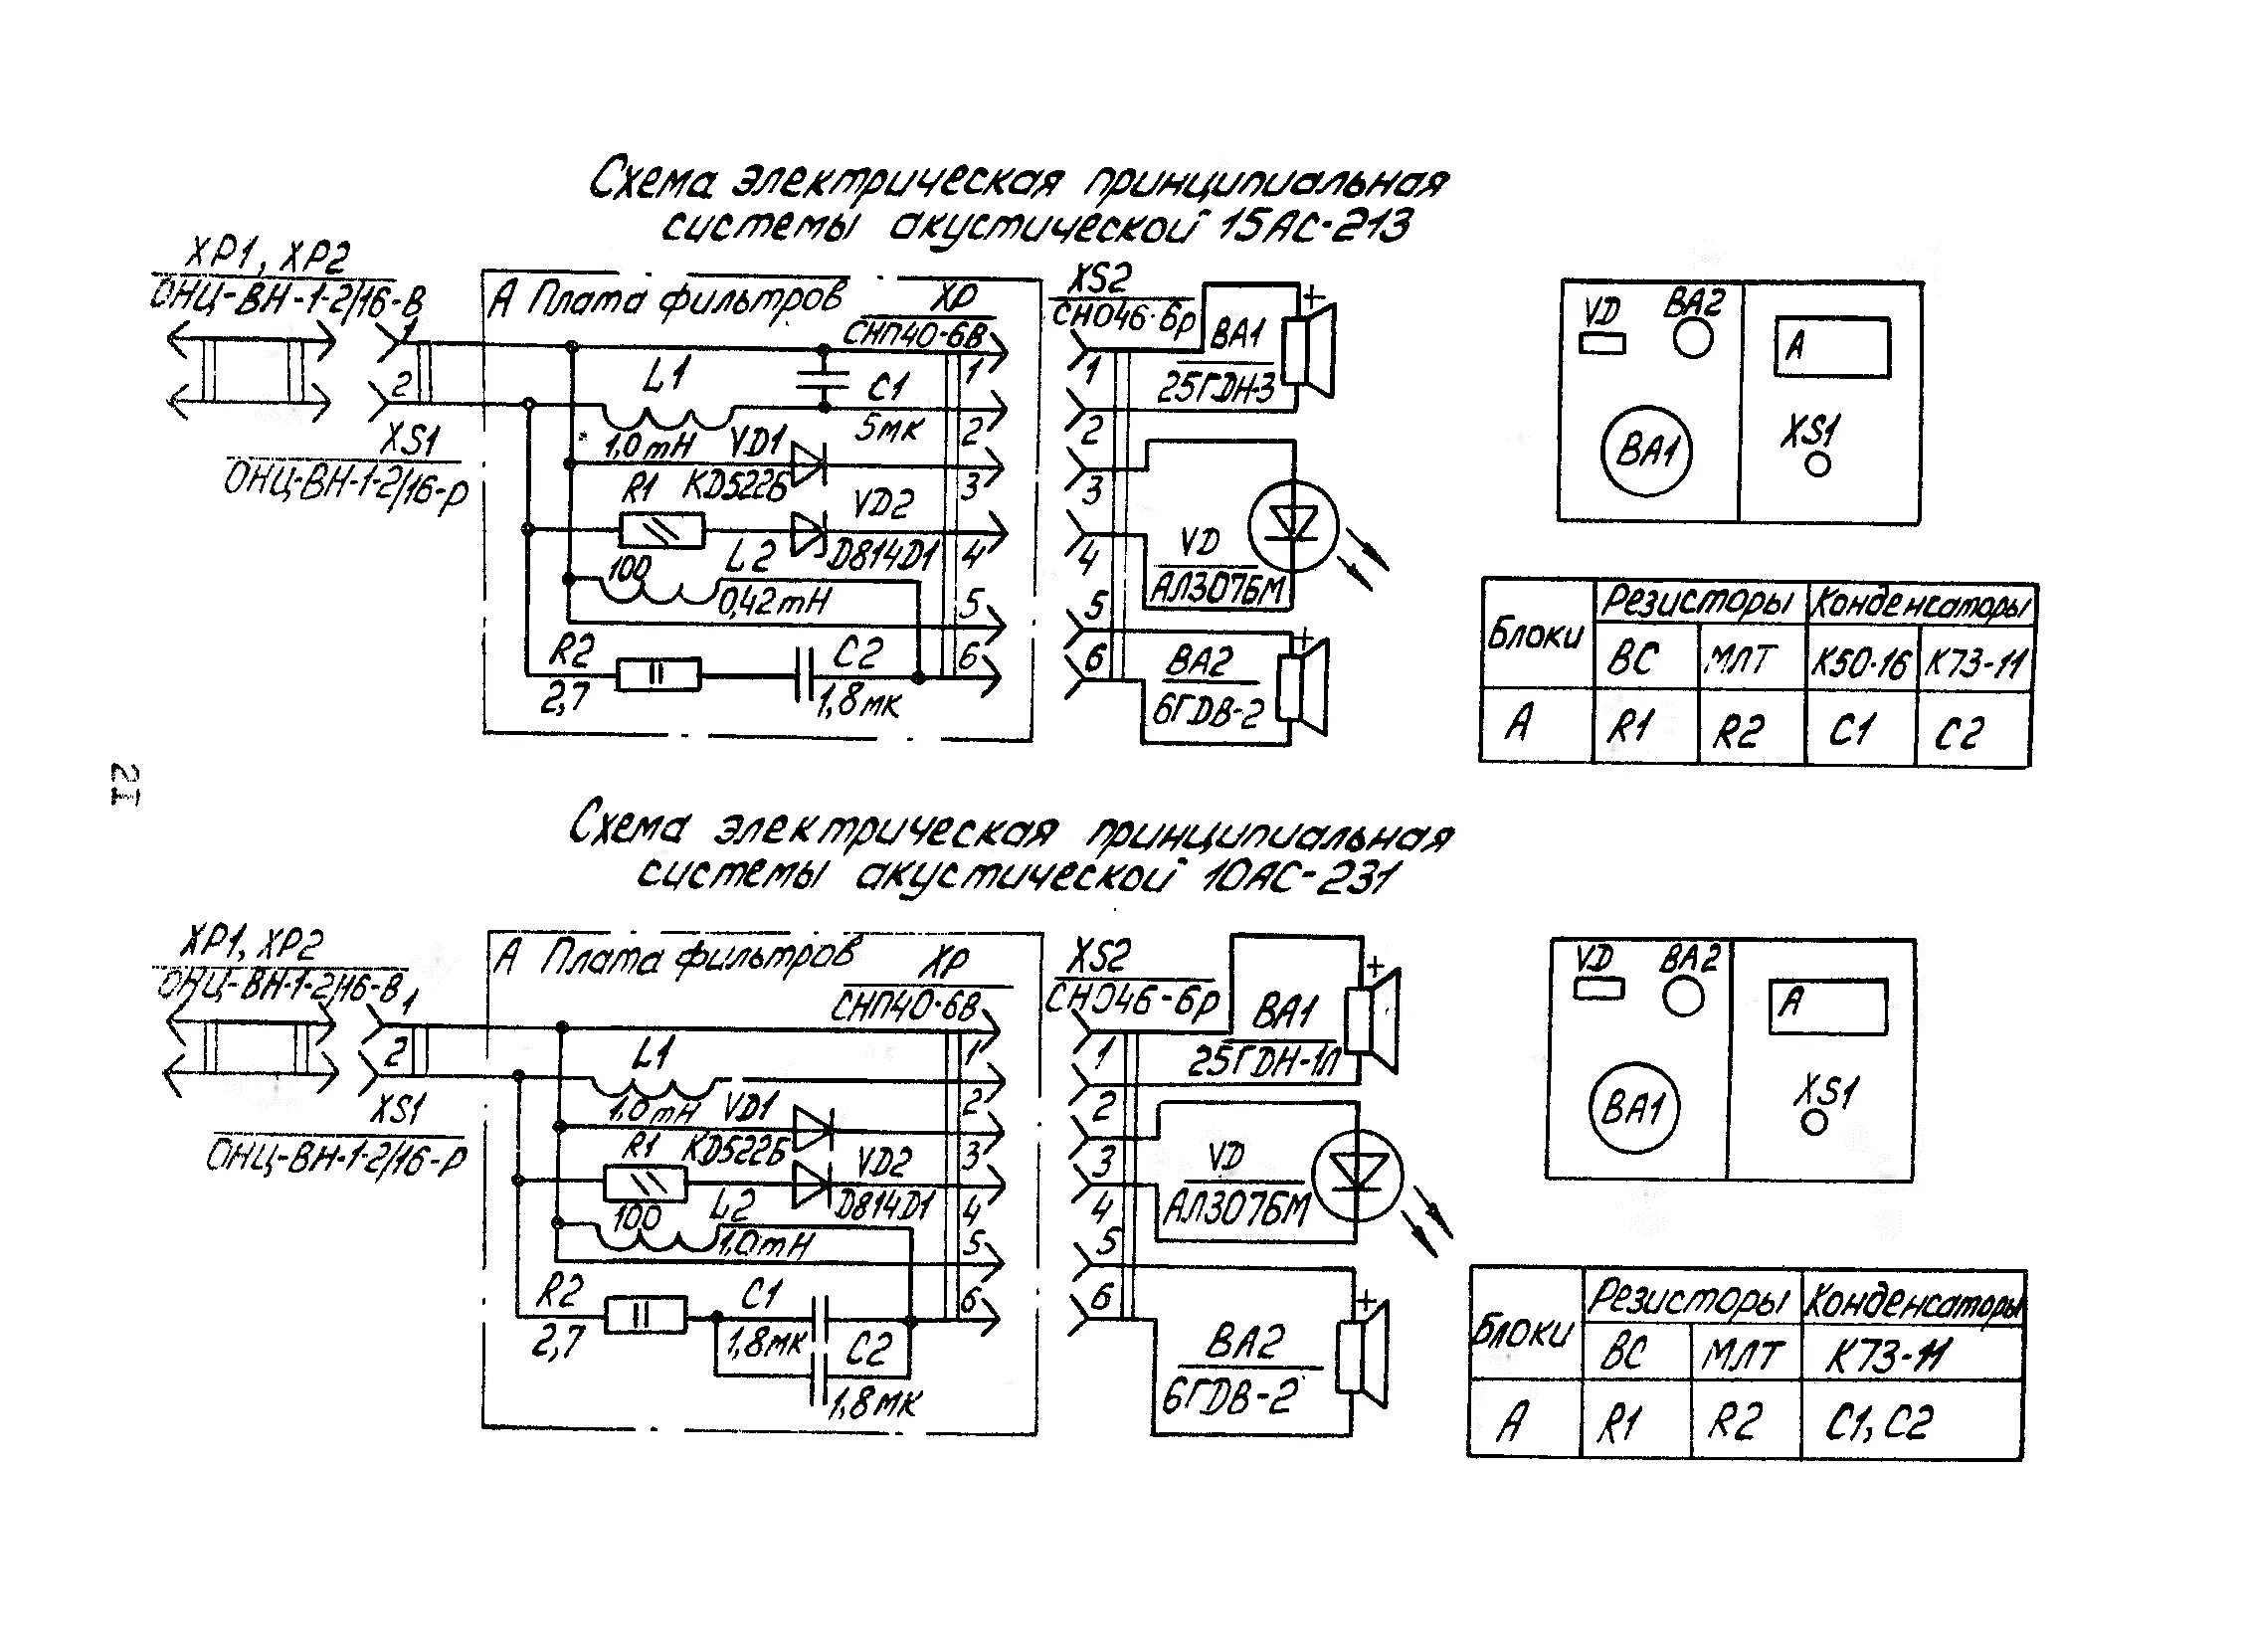 Схема электрическая принципиальная
системы акустической 15АС-213
XP1, XP2
ОНЦ-ВН-1-2/16-В
1
2
XS1
ОНЦ-ВН-1-2/16-р
А Плата фильтров
XP
СНП40-6В
L1
1,0mH
C1
5мк
VD1
КД522Б
R1
100
VD2
Д814Д1
L2
0,42mH
R2
2,7
C2
1,8мк
1
2
3
4
5
6
XS2
СНО46-6р
1
2
3
4
5
6
BA1
25ГДН-3
+
VD
АЛ307БМ
BA2
6ГДВ-2
+
VD
BA2
BA1
А
XS1
Блоки Резисторы Конденсаторы
ВС МЛТ К50-16 К73-11
А R1 R2 C1 C2
21
Схема электрическая принципиальная
системы акустической 10АС-231
XP1, XP2
ОНЦ-ВН-1-2/16-В
1
2
XS1
ОНЦ-ВН-1-2/16-р
А Плата фильтров
XP
СНП40-6В
L1
1,0mH
VD1
КД522Б
R1
100
VD2
Д814Д1
L2
1,0mH
R2
2,7
C1
1,8мк
C2
1,8мк
1
2
3
4
5
6
XS2
СНО46-6р
1
2
3
4
5
6
BA1
25ГДН-1Л
+
VD
АЛ307БМ
BA2
6ГДВ-2
+
VD
BA2
BA1
А
XS1
Блоки Резисторы Конденсаторы
ВС МЛТ К73-11
А R1 R2 C1, C2